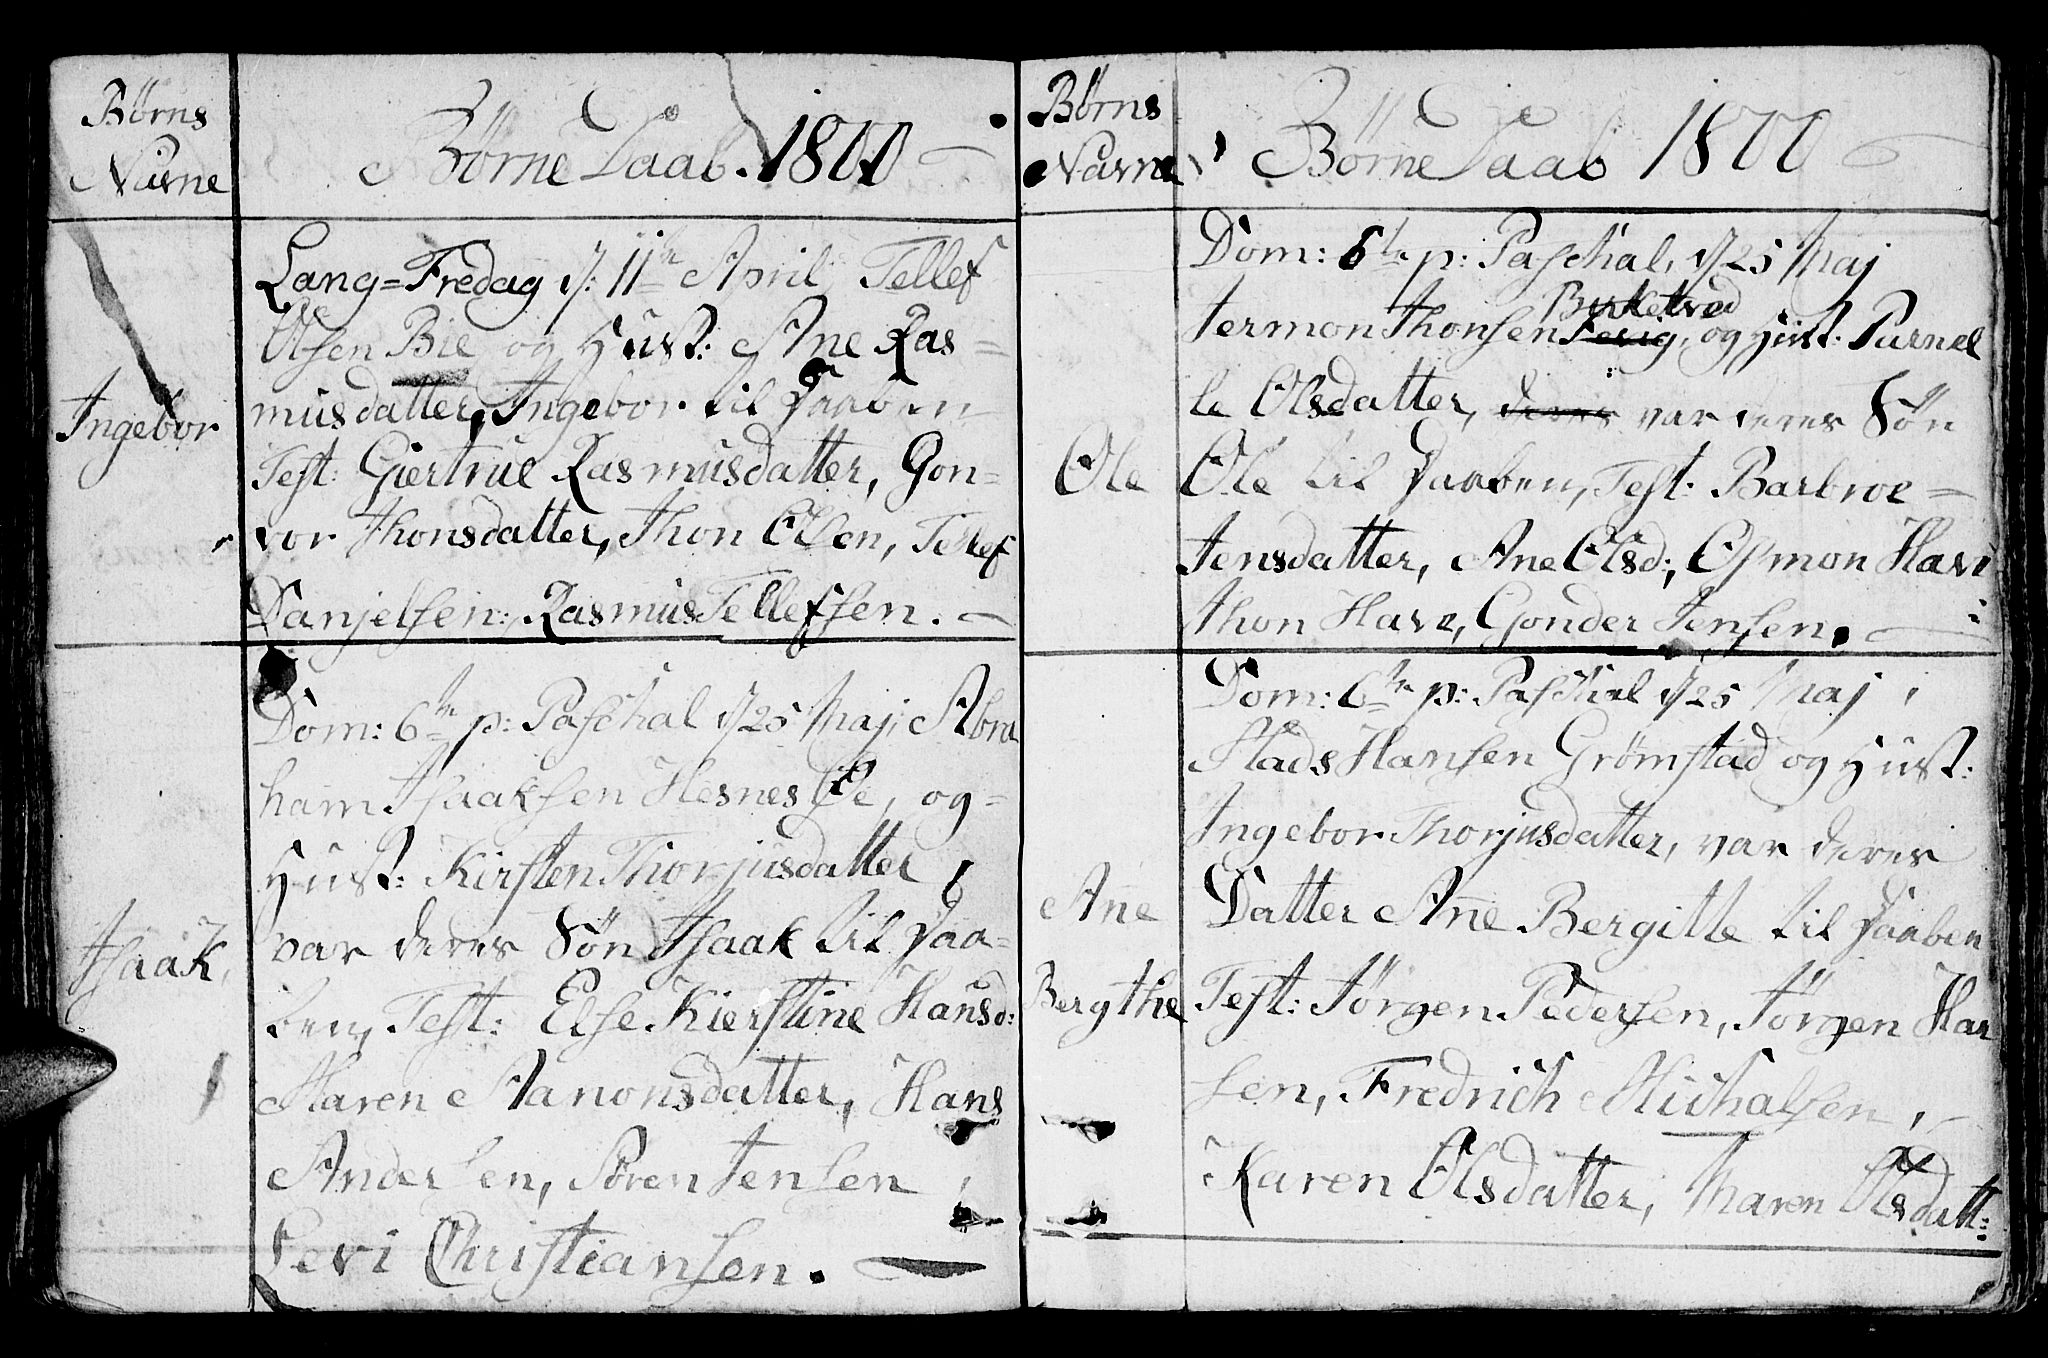 Børns
Navne
Børne Daab. 1800
Lang=Fredag d: 11te April Tellef
Olsen Bie og Hust: Ane Ras=
musdatter, Ingebor til Daaben
Ingebor
Test: Giertrue Rasmusdatter, Gon=
vor Thonsdatter, Thon Olsen, Tellef
Danjelsen, Rasmus Tellefsen.
Dom: 6te p: Paschal d 25 Maj, Abra
ham Isaaksen Hesnes Øe, og=
Hust: Kirsten Thorjusdatter,
var deres Søn Isaak til Daa=
Isaak,
ben, Test: Else Kierstine Hansd:
Maren Aanonsdatter, Hans
Andersen, Søren Jensen,
Levi Christiansen.
Børns
Navne
Børne Daab 1800
Dom: 6te p: Paschal, d 25 Maj
Birketved
Jermon Thonsen Fevig, og Hust: Purnel
le Olsdatter, deres var deres Søn
Ole
Ole til Daaben, Test: Barbroe=
Jensdatter, Ane Olsd:, Osmon Have
Thon Have, Gonder Jensen.
Dom: 6te p: Paschal d 25 Maj,
Mads Hansen Grømstad og Hust:
Ingebor Thorjusdatter, var deres
Ane
Datter Ane Bergitte til Daaben
Bergthe
Test: Jørgen Pedersen, Jørgen Han
sen, Fredrich Michalsen,
Karen Olsdatter, Maren Olsdatt: